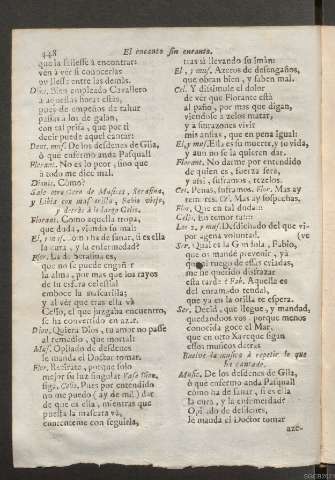 448
El encanto sin encanto.
que la saliesse à encontrar;
ven à ver si conocerlas
pudiesse entre las demàs.
Dion. Bien empleado Cavallero
à aquellas horas estàs,
pues de empeños de tahur
passas à los de galàn,
con tal prisa, que por ti
decir puede aquel cantar:
Dent. mus. De los desdenes de Gila,
ò que enfermo anda Pasqual!
Florant. No es lo peor, sino que
à todo me dice mal.
Dionis. Còmo?
Sale otro coro de Musica, Serafina,
y Libia con mascarilla, Fabio viejo,
y detràs à lo largo Celio.
Florant. Como aquella tropa,
que duda, viendo su mal:
El, y mus. Còmo ha de sanar, si es ella
la cura, y la enfermedad?
Flor. La de Serafina es,
que no se puede engañar
la alma, por mas que los rayos
de su esfera celestial
emboce la mascarilla;
y al ver que tras ella và
Celio, el que juzgaba encuentro,
se ha convertido en azar.
Dion. Quiera Dios, tu amor no passe
al remedio, que mortal:
Mus. Opilado de desdenes
le manda el Doctor tomar.
Flor. Retirate, porque solo
mejor su luz singular
siga. Celio. Pues por entendido
no me puedo (ay de mi!) dar
de que es ella, mientras que
puesta la mascara và,
contenteme con seguirla,
tras sì llevando su imàn:
El, y mus. Azeros de desengaños,
que obran bien, y saben mal.
Cel. Y dissimule el dolor
de ver que Florante està
al paño, por mas que digan,
viendole à zelos matar,
y à sinrazones vivir
mis ansias, que en pena igual:
El, y mus. Ella es su muerte, y su vida,
y aun no se la quieren dar.
Florant. No darme por entendido
de quien es, fuerza serà,
y assi, suframos, rezelos.
Cel. Penas, suframos. Flor. Mas ay
temores! Cel. Mas ay sospechas,
Flor. Que en tal duda::-
Celio. En temor tal::-
Los 2, y mus. Desdichado del que vive
por agena voluntad.
Ser. Qual es la Gondola, Fabio,
que os mandè prevenir, ya
que al ruego de essas criadas,
me he querido disfrazar
esta tarde? Fab. Aquella es
del enramado tendal,
que ya en la orilla te espera.
Ser. Decid, que llegue, y mandad,
quedandoos vos, porque menos
conocida goce el Mar,
que en otro Xareque sigan
essos musicos detràs.
Buelve la musica à repetir lo que
ha cantado.
Music. De los desdenes de Gila,
ò què enfermo anda Pasqual!
còmo ha de sanar, si es ella
la cura, y la enfermedad?
Opilado de desdenes,
le manda el Doctor tomar
aze-